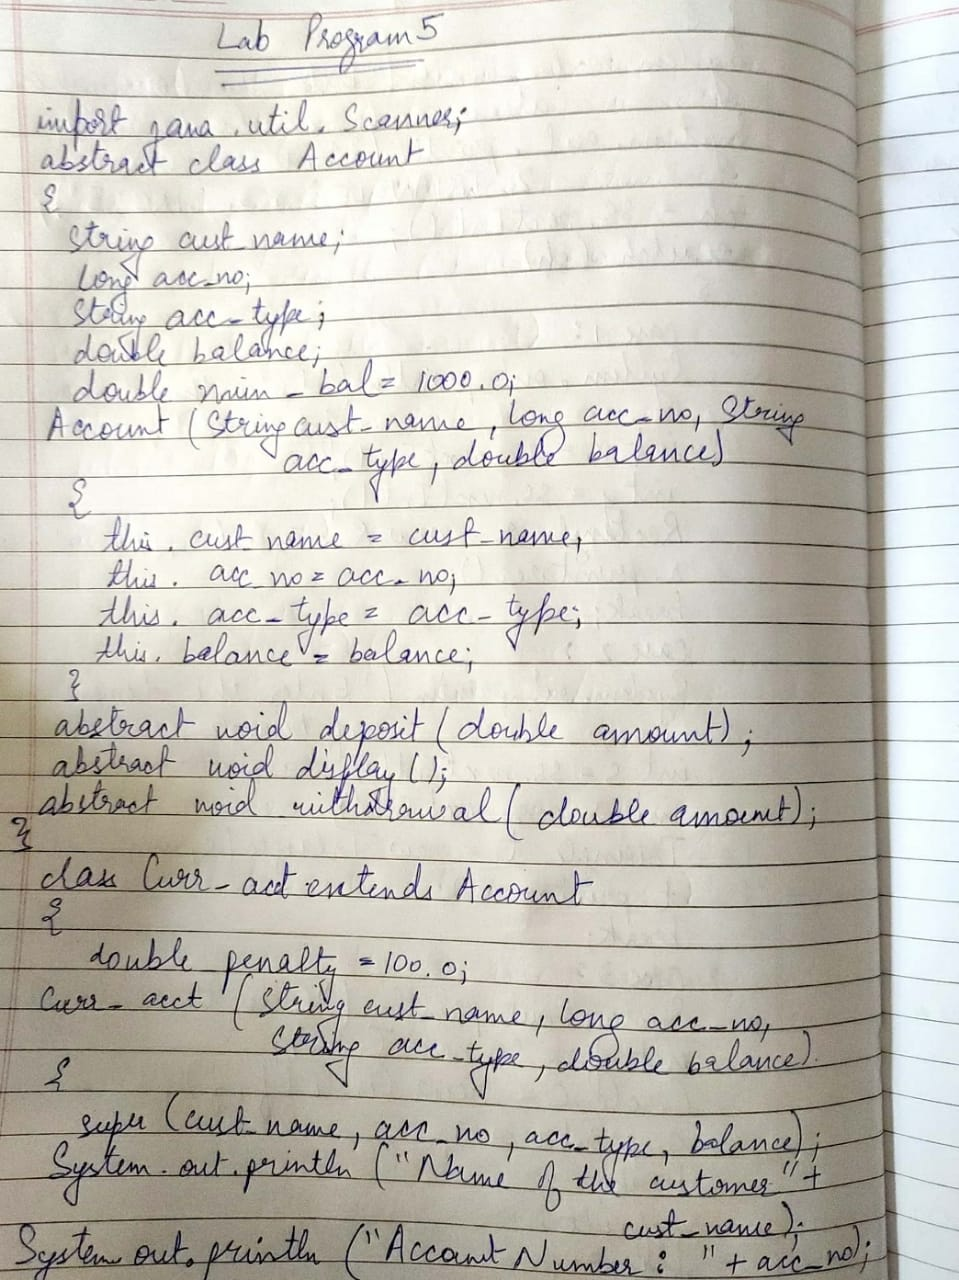 Lab Program 5
import java.util.Scanner;
abstract class Account
{
String cust_name;
long acc_no;
String acc_type;
double balance;
double min_bal = 1000.0;
Account (String cust_name, long acc_no, String
acc_type, double balance)
{
this.cust_name = cust_name;
this.acc_no = acc_no;
this.acc_type = acc_type;
this.balance = balance;
}
abstract void deposit (double amount);
abstract void display ();
abstract void withdrawal (double amount);
}
class Curr_acct extends Account
{
double penalty = 100.0;
Curr_acct (String cust_name, long acc_no,
String acc_type, double balance)
{
super (cust_name, acc_no, acc_type, balance);
System.out.println ("Name of the customer" +
cust_name);
System.out.println ("Account Number: " + acc_no);